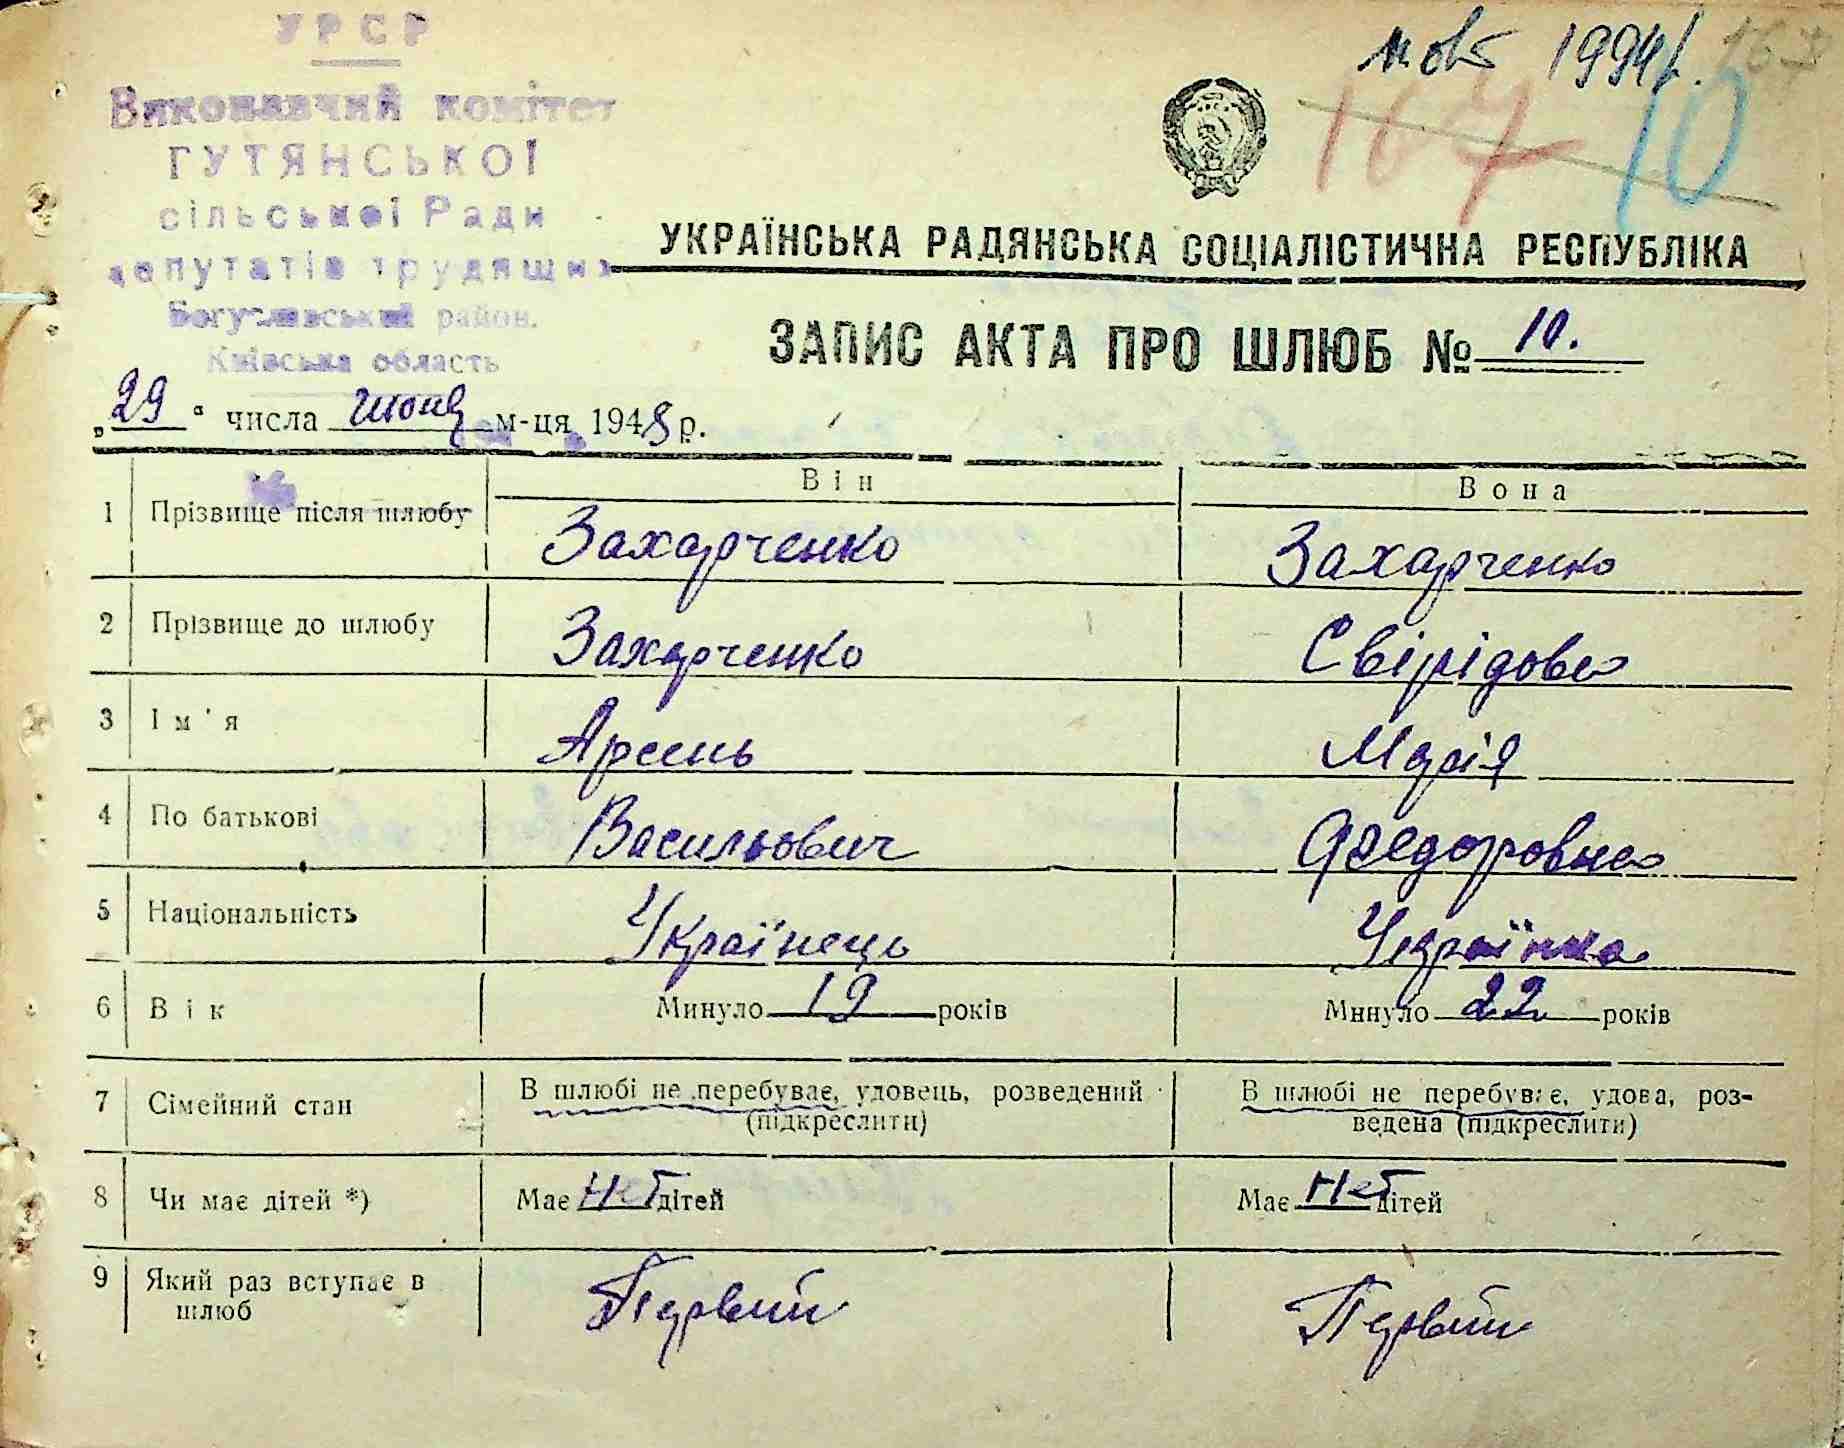 УРСР
Виконавчий комітет
ГУТЯНСЬКОЇ
сільської Ради
депутатів трудящих
Богуславський район.
Київська область
1994
167
107 10
УКРАЇНСЬКА РАДЯНСЬКА СОЦІАЛІСТИЧНА РЕСПУБЛІКА
ЗАПИС АКТА ПРО ШЛЮБ № 10.
„29“ числа июня м-ця 1948 р.
Він Вона
1 Прізвище після шлюбу Захарченко Захарченко
2 Прізвище до шлюбу Захарченко Свірідова
3 Ім'я Арсень Марія
4 По батькові Васильович Федоровна
5 Національність Українець Українка
6 Вік Минуло 19 років Минуло 22 років
7 Сімейний стан В шлюбі не перебуває, удовець, розведений (підкреслити) В шлюбі не перебуває, удова, роз-
ведена (підкреслити)
8 Чи має дітей *) Має Нет дітей Має Нет дітей
9 Який раз вступає в
шлюб Первий Первий